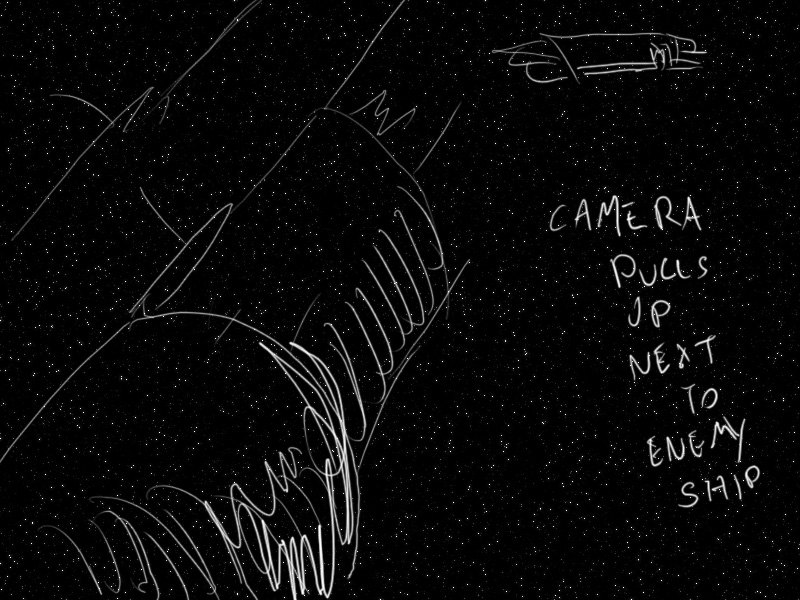 CAMERA
PULLS
UP
NEXT
TO
ENEMY
SHIP